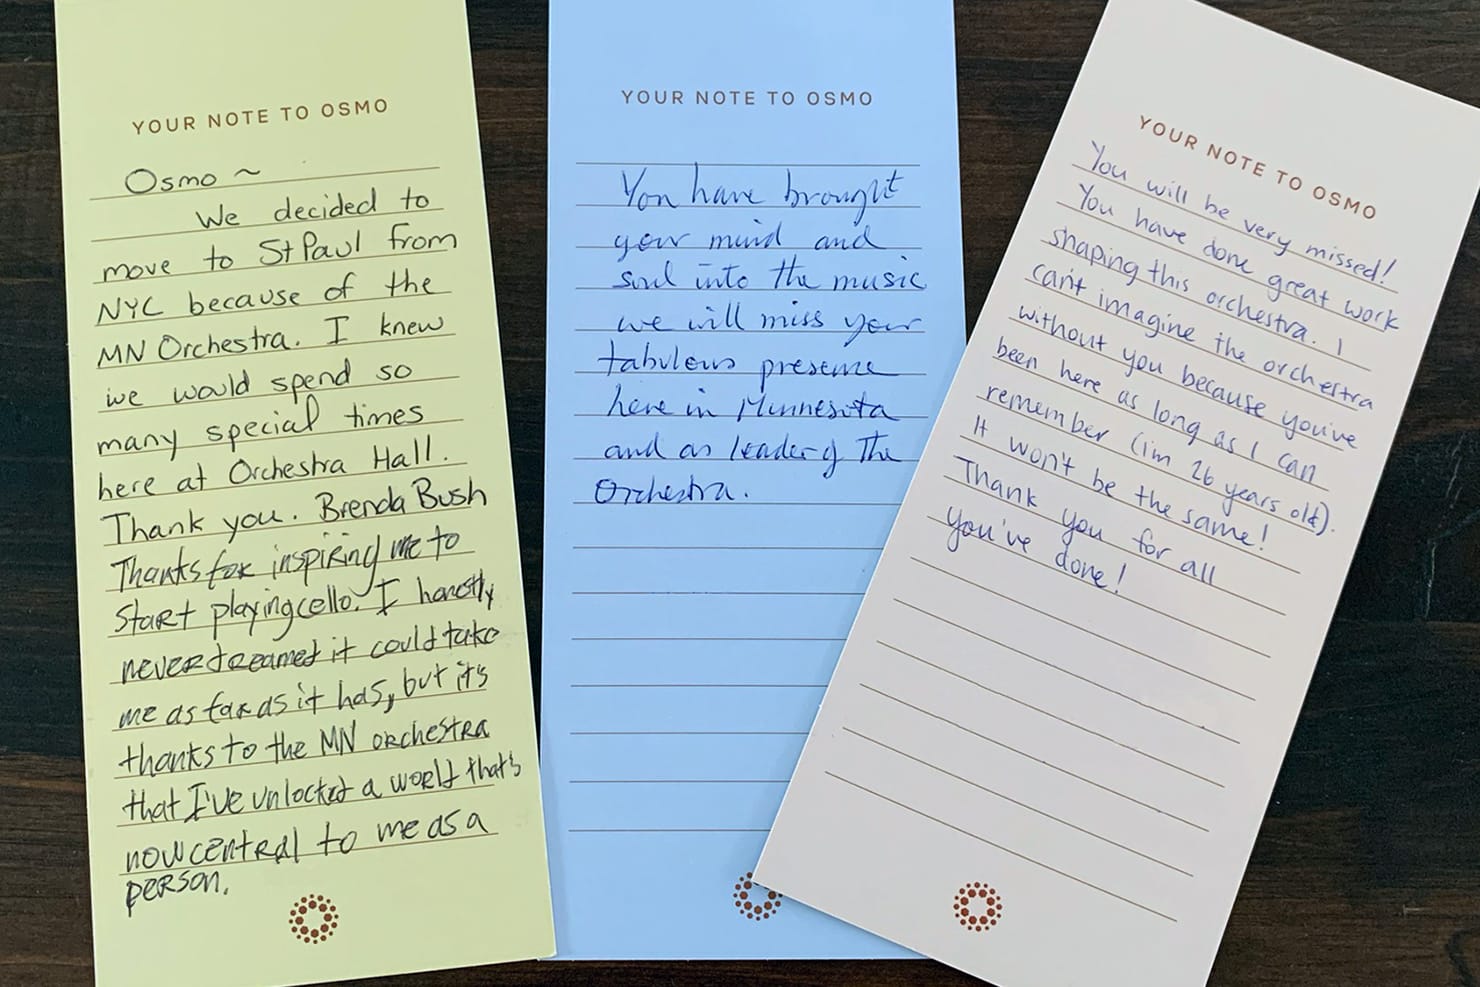 YOUR NOTE TO OSMO
Osmo ~
We decided to
move to St Paul from
NYC because of the
MN Orchestra. I knew
we would spend so
many special times
here at Orchestra Hall.
Thank you. Brenda Bush
Thanks for inspiring me to
start playing cello. I honestly
never dreamed it could take
me as far as it has, but it's
thanks to the MN orchestra
that I've unlocked a world that's
now central to me as a
person.
YOUR NOTE TO OSMO
You have brought
your mind and
soul into the music
we will miss your
fabulous presence
here in Minnesota
and as leader of the
Orchestra.
YOUR NOTE TO OSMO
You will be very missed!
You have done great work
shaping this orchestra. I
can't imagine the orchestra
without you because you've
been here as long as I can
remember (im 26 years old).
It won't be the same!
Thank you for all
you've done!